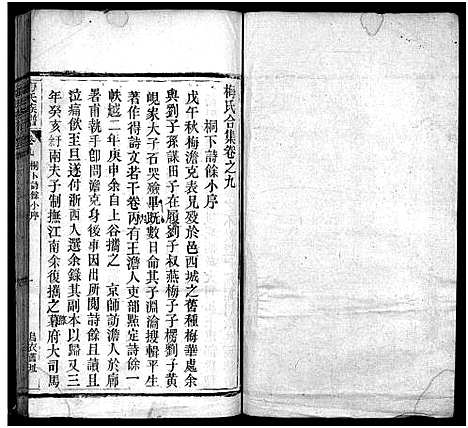 梅氏合集卷之九
桐下詩餘小序
戊午秋梅澹克表兄歿於邑西城之舊種梅華處余
與劉子孫謀田子在履劉子叔燕梅子子楞劉子黄
峴家大子石哭殮畢既數日命其子淵淪搜輯平生
著作得詩文若干卷丙有王澹人吏部點定詩餘一
帙越二年庚申余自上谷攜之 京師訪澹人於廊
署甫執手卽問澹克身後事因出所閲詩餘且讀且
泣痛飲至旦遂付浙西人選余錄其副本以歸又三
年癸亥 兩夫子制撫江南余復攜之幕府大司馬
氏族譜
桐下詩餘小序
一